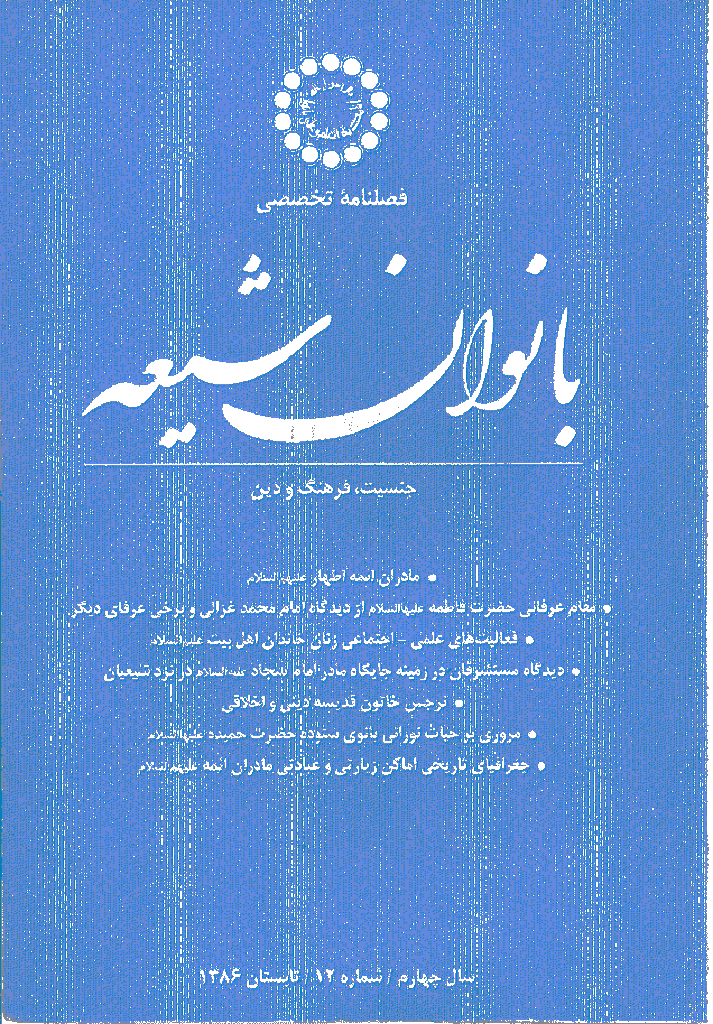 فصلنامهٔ تخصصی
بانوان شیعه
جنسیت، فرهنگ و دین
• مادران ائمه اطهار علیهم‌السلام
• مقام عرفانی حضرت فاطمه علیهاالسلام از دیدگاه امام محمد غزالی و برخی عرفای دیگر
• فعالیت‌های علمی - اجتماعی زنان خاندان اهل بیت علیهم‌السلام
• دیدگاه مستشرقان در زمینه جایگاه مادر امام سجاد علیه‌السلام در نزد شیعیان
• نرجس خاتون قدیسه دینی و اخلاقی
• مروری بر حیات نورانی بانوی ستوده حضرت حمیده علیهاالسلام
• جغرافیای تاریخی اماکن زیارتی و عبادتی مادران ائمه علیهم‌السلام
سال چهارم / شماره ۱۲ / تابستان ۱۳۸۶